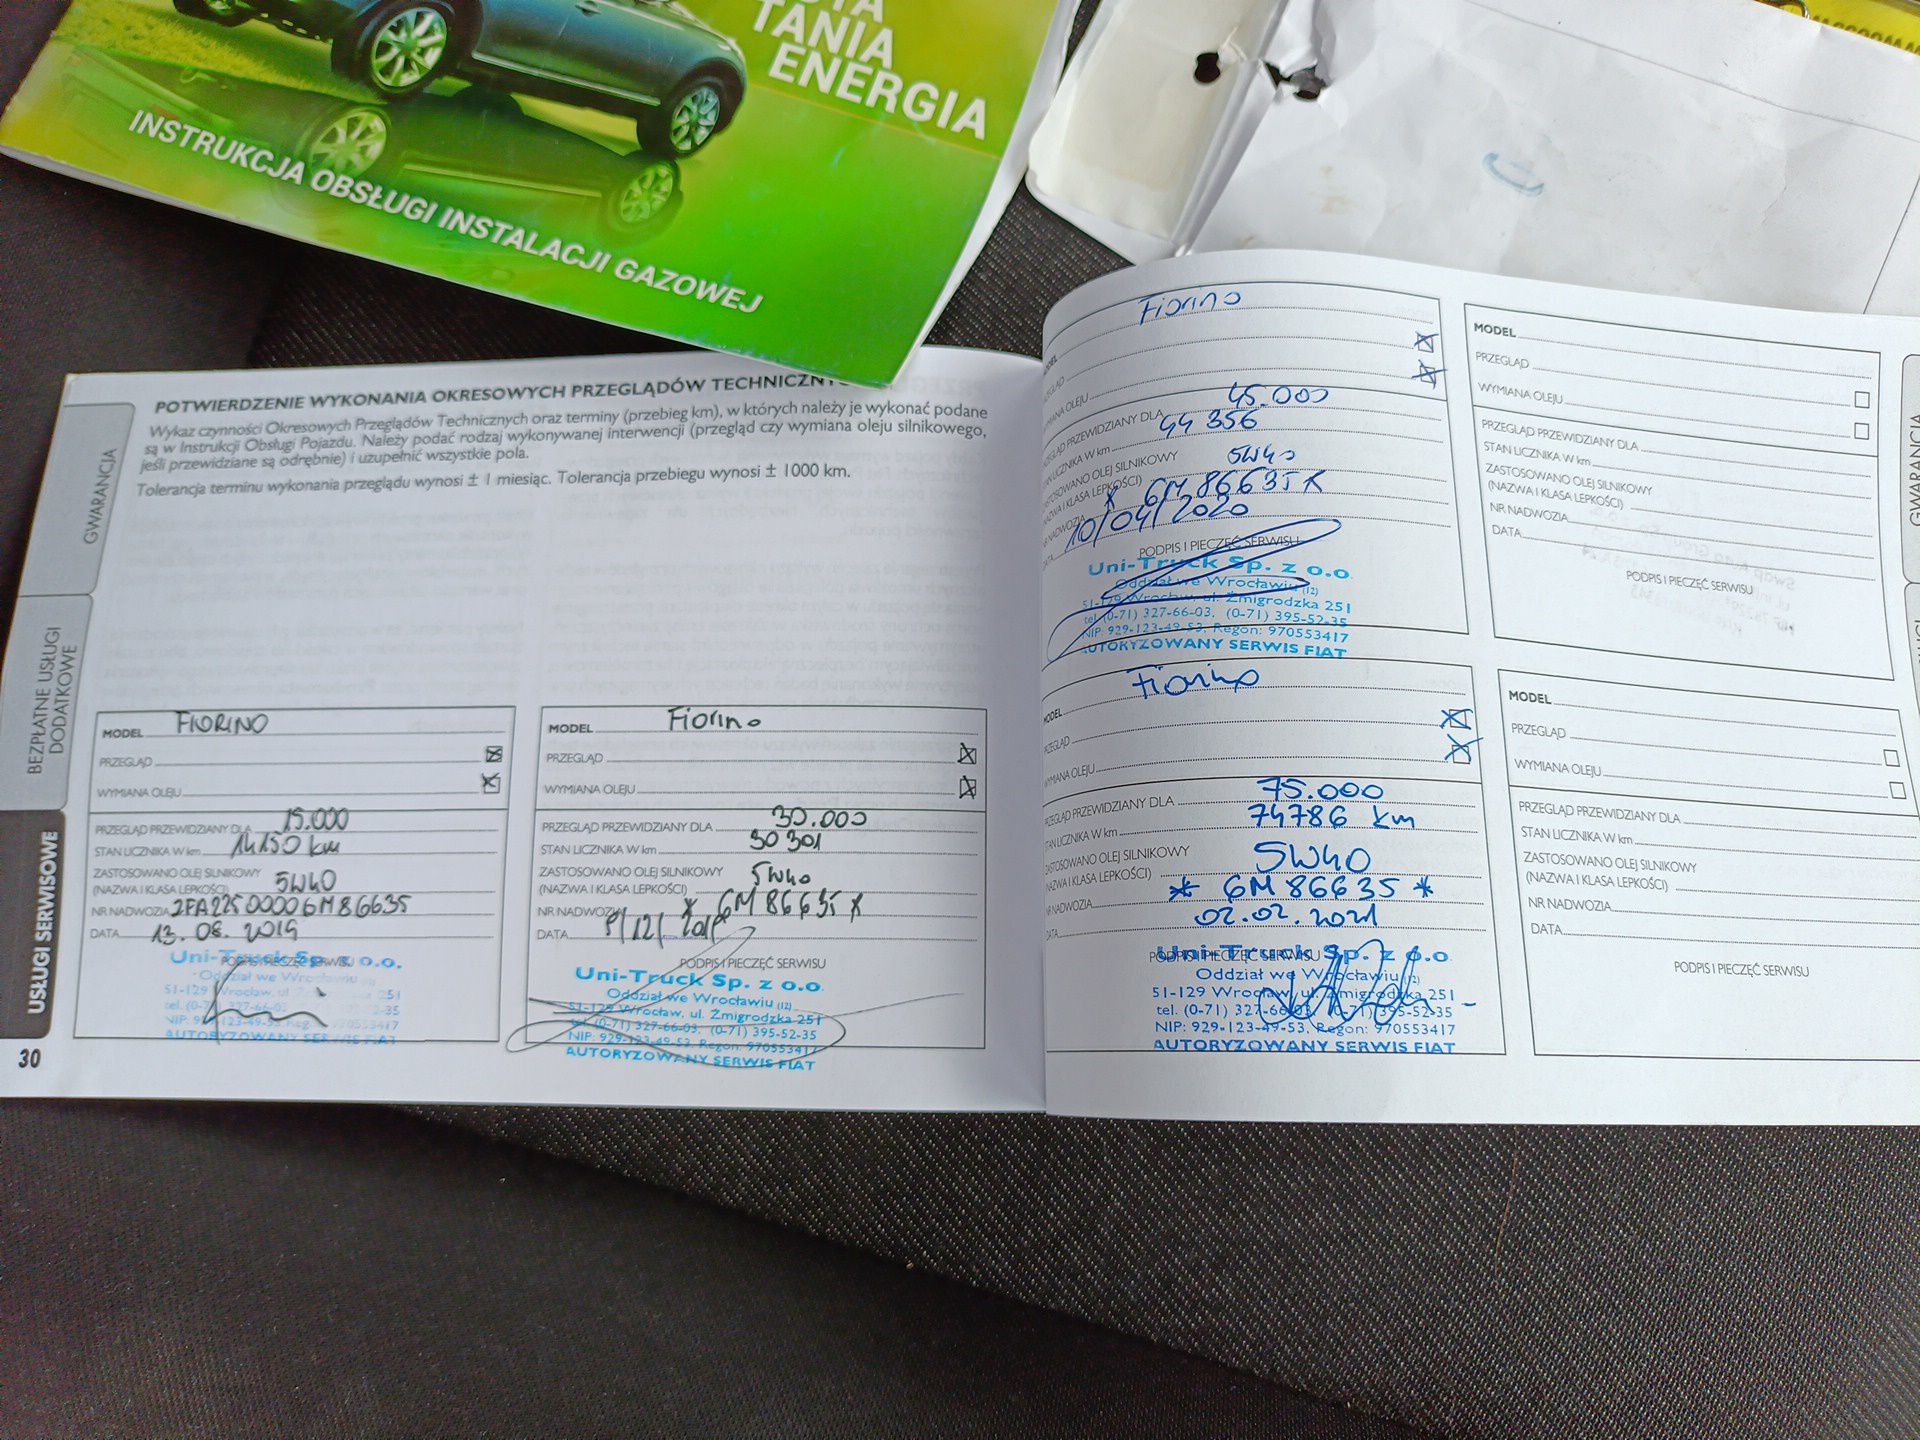 TANIA
ENERGIA
INSTRUKCJA OBSŁUGI INSTALACJI GAZOWEJ
POTWIERDZENIE WYKONANIA OKRESOWYCH PRZEGLĄDÓW
Wykaz czynności Okresowych Przeglądów Technicznych oraz terminy (przebieg km), w których należy je wykonać podane
są w Instrukcji Obsługi Pojazdu. Należy podać rodzaj wykonywanej interwencji (przegląd czy wymiana oleju silnikowego,
jeśli przewidziane są odrębnie) i uzupełnić wszystkie pola.
Tolerancja terminu wykonania przeglądu wynosi ± 1 miesiąc. Tolerancja przebiegu wynosi ± 1000 km.
GWARANCJA
BEZPŁATNE USŁUGI
DODATKOWE
USŁUGI SERWISOWE
30
MODEL FIORINO
PRZEGLĄD
WYMIANA OLEJU
PRZEGLĄD PRZEWIDZIANY DLA 15.000
STAN LICZNIKA W km 14150 km
ZASTOSOWANO OLEJ SILNIKOWY
(NAZWA I KLASA LEPKOŚCI) 5W40
NR NADWOZIA ZFA22500006M86635
DATA 13.08.2019
Uni-Truck Sp. z o.o.
Oddział we Wrocławiu
AUTORYZOWANY SERWIS FIAT
MODEL Fiorino
PRZEGLĄD
WYMIANA OLEJU
PRZEGLĄD PRZEWIDZIANY DLA 30.000
STAN LICZNIKA W km 30301
ZASTOSOWANO OLEJ SILNIKOWY
(NAZWA I KLASA LEPKOŚCI) 5W40
NR NADWOZIA * 6M86635 *
DATA
PODPIS I PIECZĘĆ SERWISU
Uni-Truck Sp. z o.o.
Oddział we Wrocławiu (12)
51-129 Wrocław, ul. Żmigrodzka 251
tel. (0-71) 327-66-03, (0-71) 395-52-35
NIP: 929-123-49-53, Regon: 970553417
AUTORYZOWANY SERWIS FIAT
Fiorino
45.000
PRZEWIDZIANY DLA
44 356
W km
OLEJ SILNIKOWY 5W40
KLASA LEPKOŚCI)
* 6M86635 *
10/04/2020
PODPIS I PIECZĘĆ SERWISU
Uni-Truck Sp. z o.o.
Oddział we Wrocławiu (12)
51-129 Wrocław, ul. Żmigrodzka 251
tel. (0-71) 327-66-03, (0-71) 395-52-35
NIP: 929-123-49-53, Regon: 970553417
AUTORYZOWANY SERWIS FIAT
MODEL Fiorino
WYMIANA OLEJU
PRZEWIDZIANY DLA 75.000
W km 74786 km
OLEJ SILNIKOWY
KLASA LEPKOŚCI) 5W40
NADWOZIA * 6M86635 *
02.02.2021
PODPIS I PIECZĘĆ SERWISU
Uni-Truck Sp. z o.o.
Oddział we Wrocławiu (12)
51-129 Wrocław, ul. Żmigrodzka 251
tel. (0-71) 327-66-03, (0-71) 395-52-35
NIP: 929-123-49-53, Regon: 970553417
AUTORYZOWANY SERWIS FIAT
MODEL
PRZEGLĄD
WYMIANA OLEJU
PRZEGLĄD PRZEWIDZIANY DLA
STAN LICZNIKA W km
ZASTOSOWANO OLEJ SILNIKOWY
(NAZWA I KLASA LEPKOŚCI)
NR NADWOZIA
DATA
PODPIS I PIECZĘĆ SERWISU
MODEL
PRZEGLĄD
WYMIANA OLEJU
PRZEGLĄD PRZEWIDZIANY DLA
STAN LICZNIKA W km
ZASTOSOWANO OLEJ SILNIKOWY
(NAZWA I KLASA LEPKOŚCI)
NR NADWOZIA
DATA
PODPIS I PIECZĘĆ SERWISU
GWARANCJA